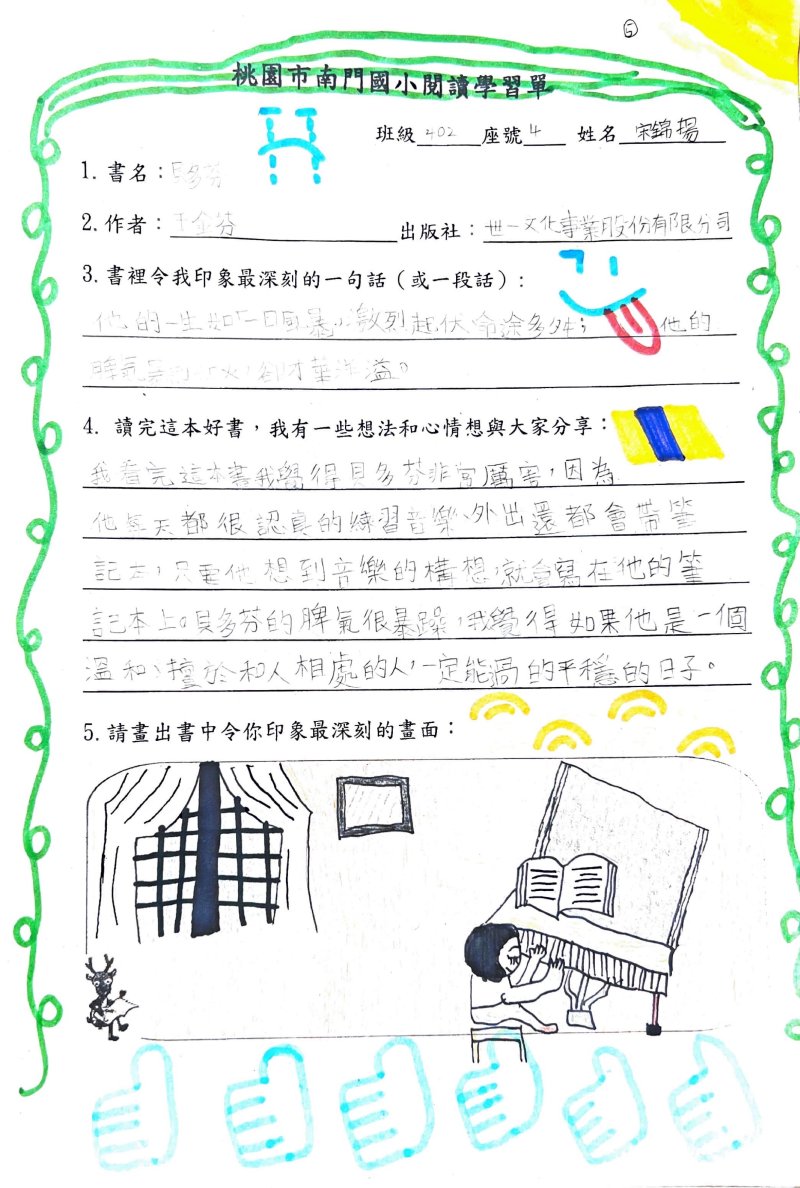 ⑤
桃園市南門國小閱讀學習單
班級 402 座號 4 姓名 宋錦揚
1. 書名：貝多芬
2. 作者： 出版社：世一文化事業股份有限公司
3. 書裡令我印象最深刻的一句話（或一段話）：
他的一生如 風暴，激烈起伏命途多舛； 他的
脾氣 火，卻才華洋溢。
4. 讀完這本好書，我有一些想法和心情想與大家分享：
我看完這本書我覺得貝多芬非常厲害，因為
他每天都很認真的練習音樂、外出還都會帶筆
記本，只要他想到音樂的構想，就會寫在他的筆
記本上。貝多芬的脾氣很暴躁，我覺得如果他是一個
溫和、擅於和人相處的人，一定能過的平穩的日子。
5. 請畫出書中令你印象最深刻的畫面：